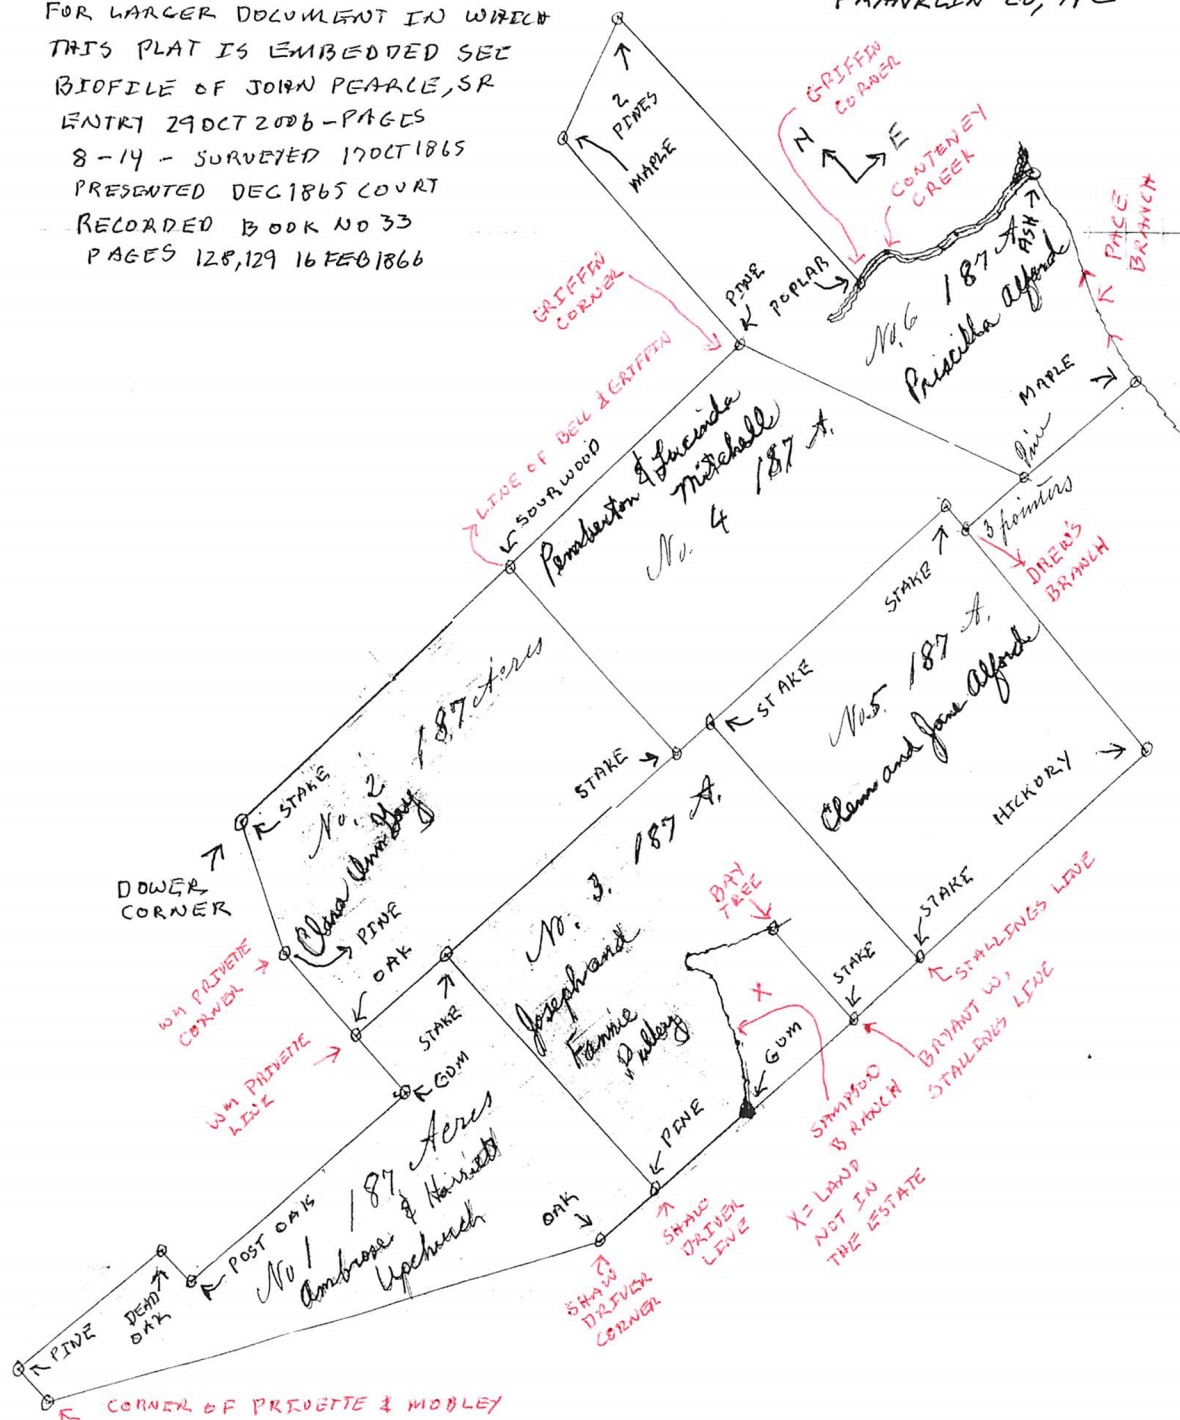 FOR LARGER DOCUMENT IN WHICH
THIS PLAT IS EMBEDDED SEE
BIOFILE OF JOHN PEARCE, SR
ENTRY 29 OCT 2006 - PAGES
8 - 14 - SURVEYED 17 OCT 1865
PRESENTED DEC 1865 COURT
RECORDED BOOK NO 33
PAGES 128, 129 16 FEB 1866
FRANKLIN CO, NC
2
PINES
MAPLE
GRIFFIN
CORNER
N
E
CONTENEY
CREEK
PACE
BRANCH
ASH
PINE
POPLAR
GRIFFIN
CORNER
No. 6 187 A.
Priscilla Alford
MAPLE
Pine
3 pointers
DREW'S
BRANCH
LINE OF BELL & GRIFFIN
SOURWOOD
Pemberton & Lucinda
Mitchell
No. 4 187 A.
STAKE
STAKE
No. 5 187 A.
Clem and Jane Alford
HICKORY
STAKE
STAKE
No. 2 187 Acres
Clara Ann Gay
DOWER
CORNER
STAKE
PINE
OAK
WM PRIVETTE
CORNER
WM PRIVETTE
LINE
STAKE
GUM
No. 3. 187 A.
Joseph and
Fannie
Pulley
BAY
TREE
X
STAKE
STALLINGS LINE
BRYANT W.
STALLINGS LINE
GUM
SAMPSON
BRANCH
X = LAND
NOT IN
THE ESTATE
PINE
SHAW
DRIVER
LINE
OAK
SHAW
DRIVER
CORNER
No 1 187 Acres
Ambrose & Harriett
Upchurch
POST OAK
DEAD
OAK
PINE
CORNER OF PRIVETTE & MOBLEY